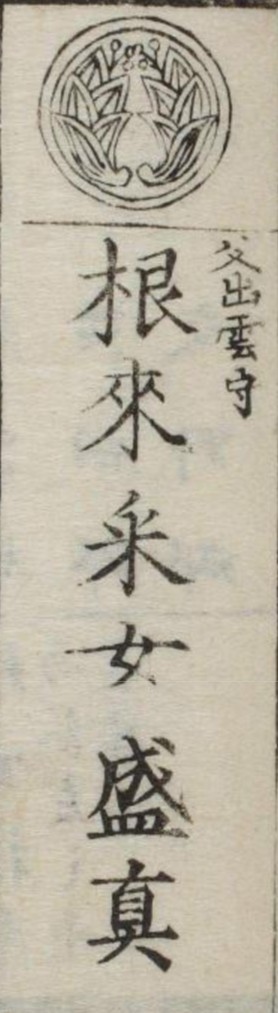 父出雲守
根來采女盛真